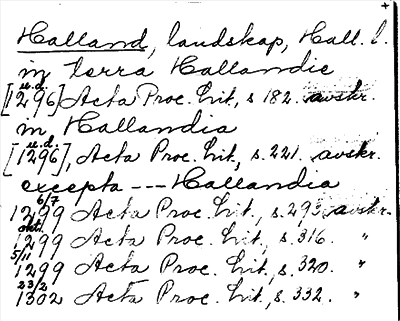 +
Halland, landskap, Hall. l.
in terra Hallandie
u.d.
[1296] Acta Proc. Lit, s 182. avskr.
in Hallandia
u.d.
[1296], Acta Proc. Lit, s. 221. avskr.
excepta --- Hallandia
6/7
1299 Acta Proc. Lit, s. 293. avskr.
okt.
1299 Acta Proc. Lit., s. 316. "
5/11
1299 Acta Proc. Lit., s. 320. "
23/2
1302 Acta Proc. Lit., s. 332. "